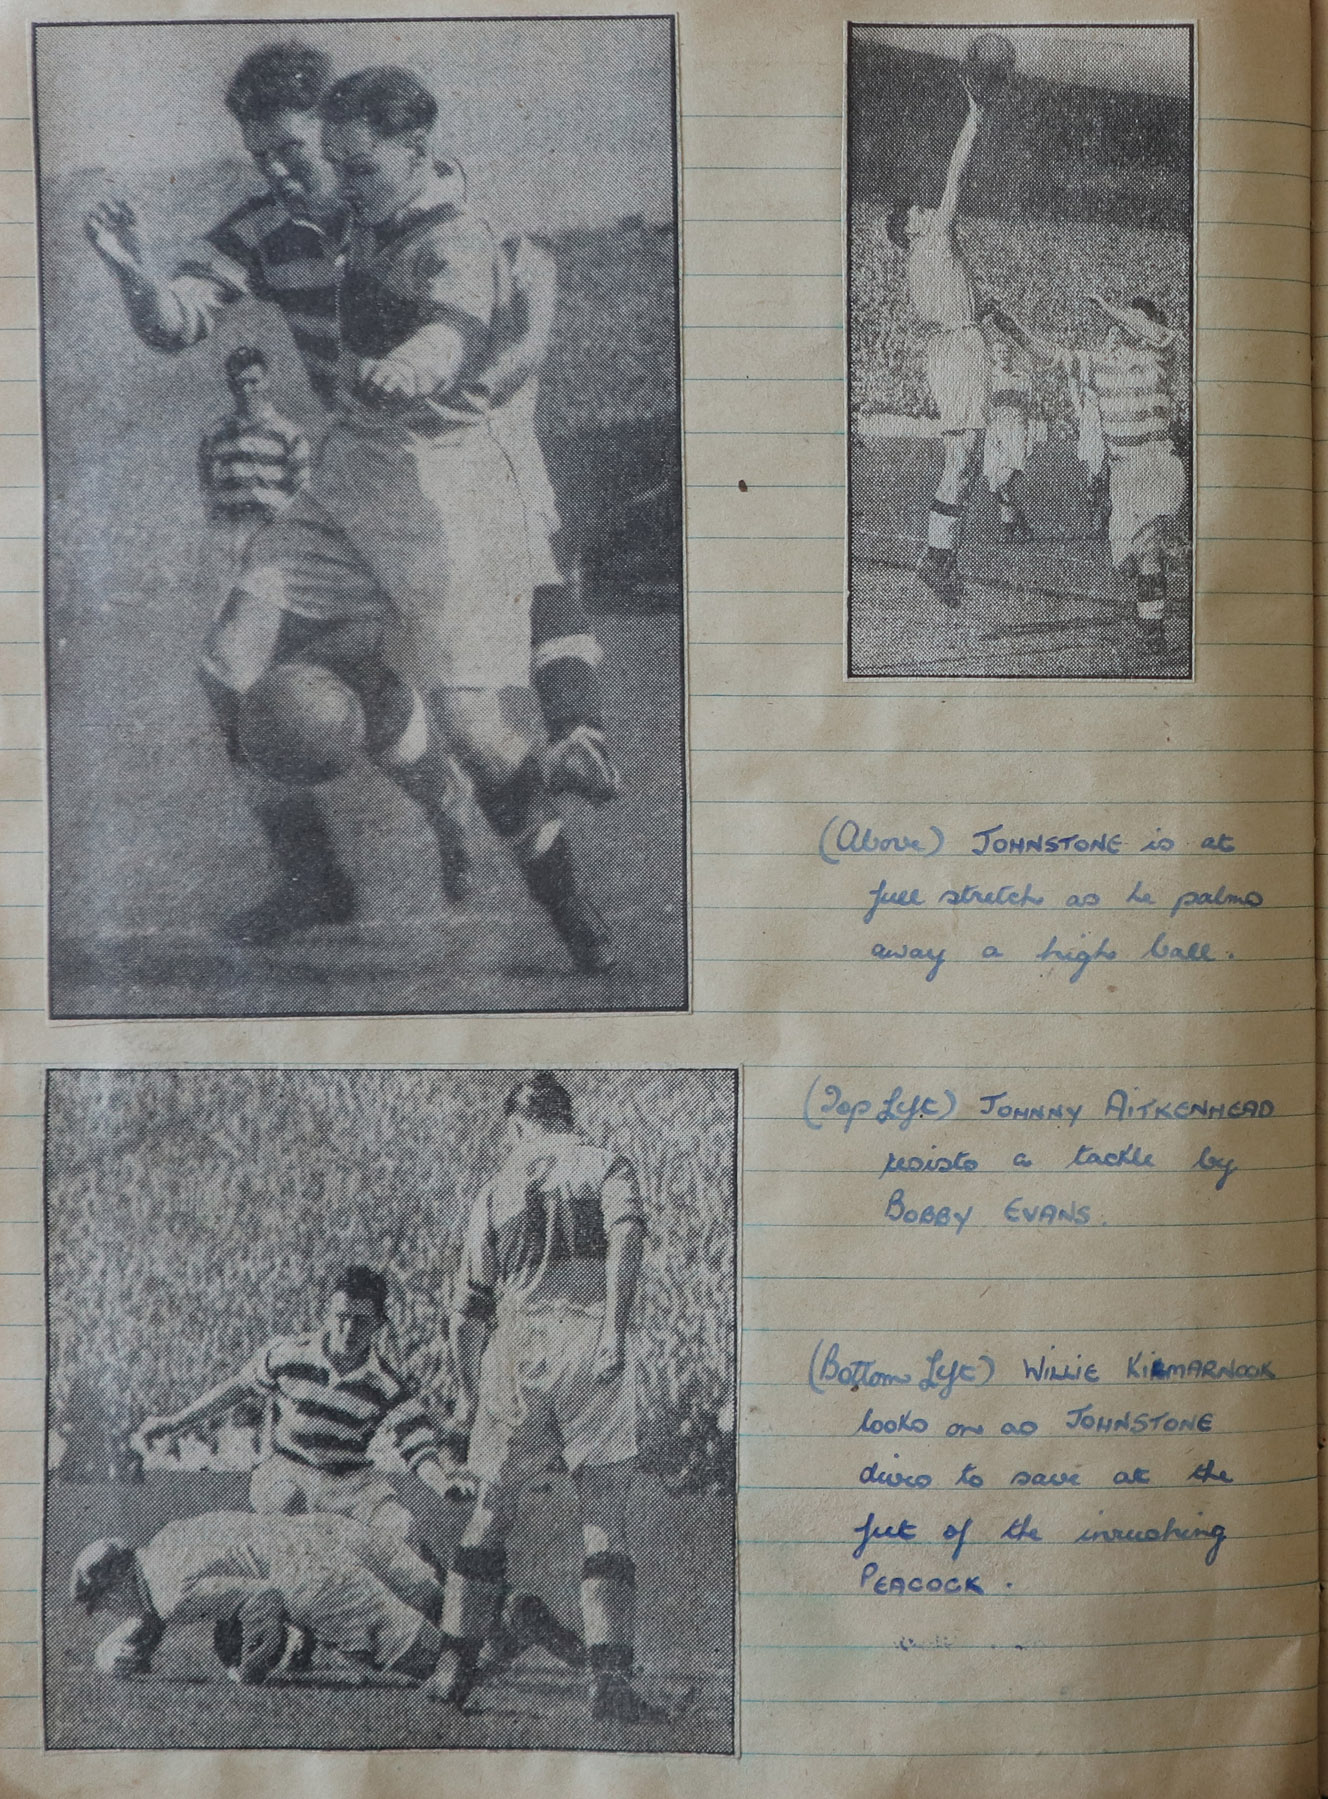 (Above) JOHNSTONE is at
full stretch as he palms
away a high ball.
(Top Left) JOHNNY AITKENHEAD
resists a tackle by
BOBBY EVANS.
(Bottom Left) WILLIE KILMARNOCK
looks on as JOHNSTONE
dives to save at the
feet of the inrushing
PEACOCK.